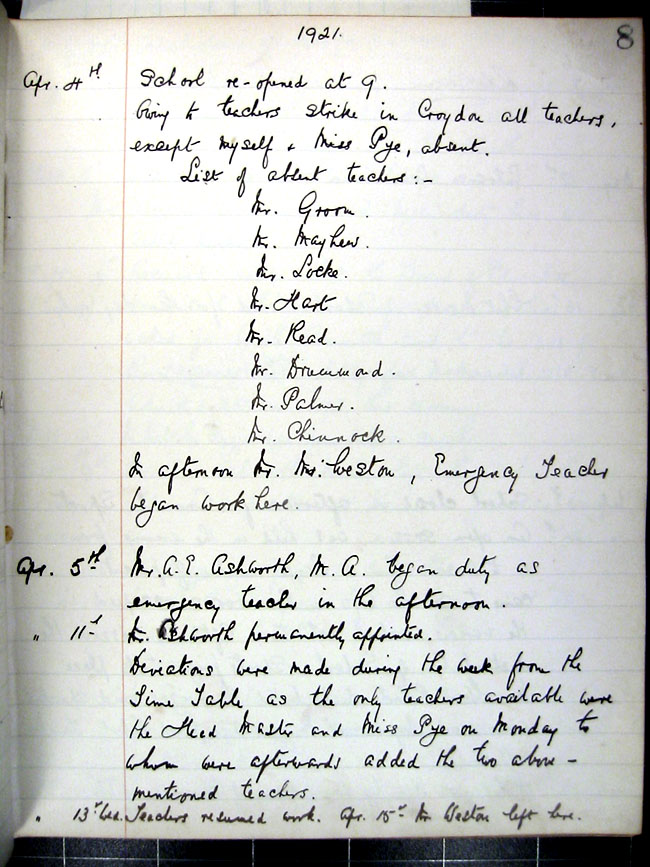 1921.
8
Apr. 4th School re-opened at 9.
Owing to teachers strike in Croydon all teachers,
except myself & Miss Pye, absent.
List of absent teachers:-
Mr. Groom.
Mr. Mayhew.
Mr. Locke.
Mr. Hart
Mr. Read.
Mr. Drummond.
Mr. Palmer.
Mr. Chinnock.
In afternoon Mr. Weston, Emergency Teacher
began work here.
Apr. 5th Mr. A. E. Ashworth, M. A. began duty as
emergency teacher in the afternoon.
" 11th Mr. Ashworth permanently appointed.
Deviations were made during the week from the
Time Table, as the only teachers available were
the Head Master and Miss Pye on Monday to
whom were afterwards added the two above-
mentioned teachers.
" 13th Teachers resumed work. Apr. 15th Mr Weston left here.